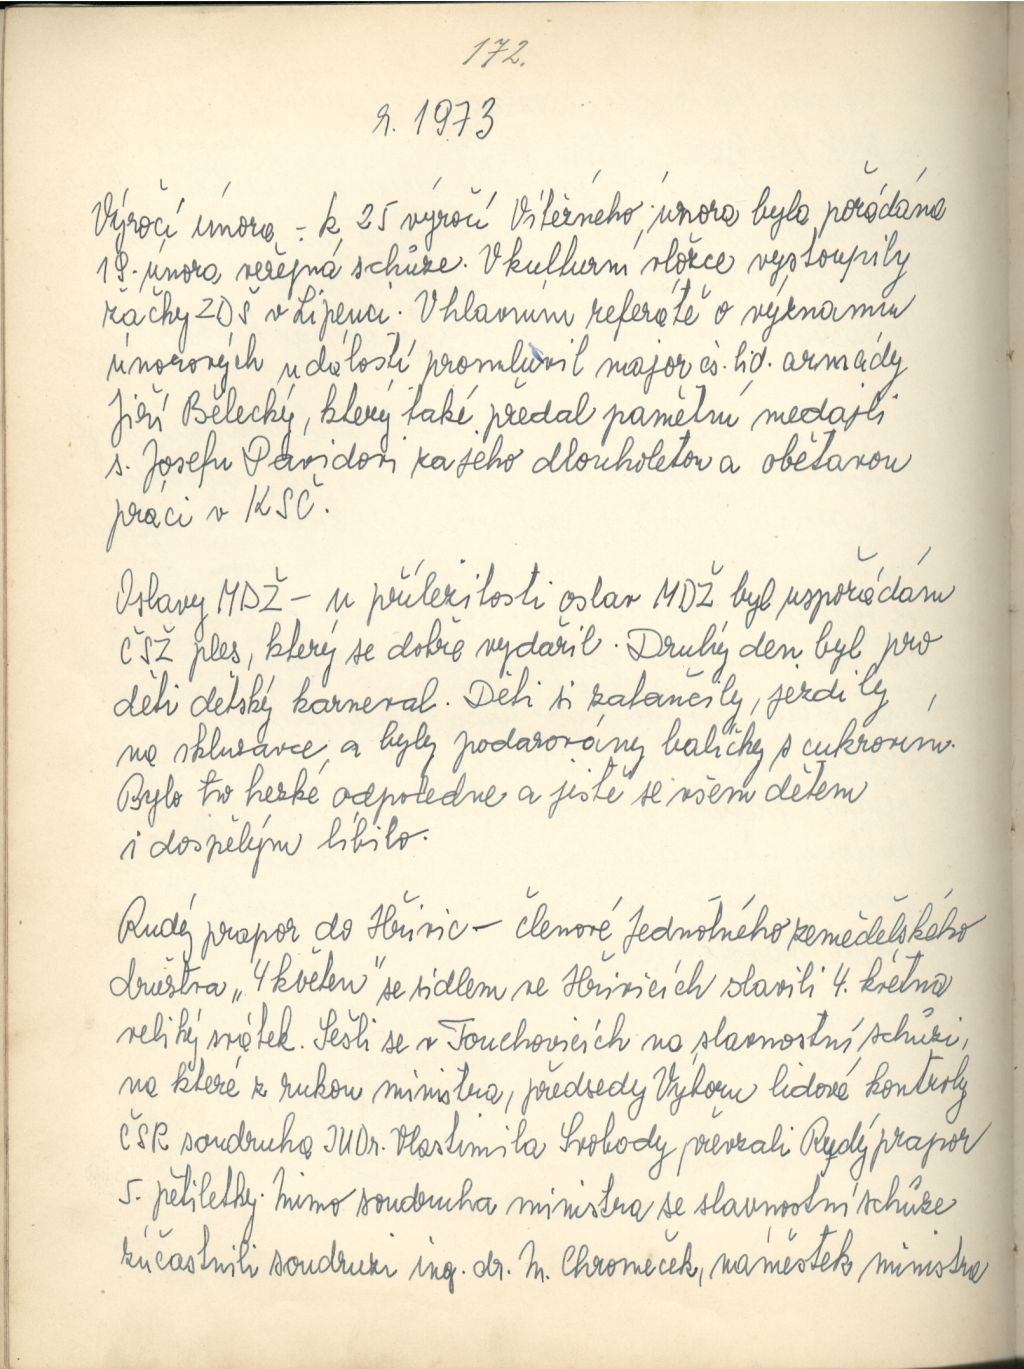 172.
r. 1973
Výročí února - k 25 výročí Vítězného února byla pořádána
19. února veřejná schůze. V kulturní vložce vystoupily
žačky ZDŠ v Lipenci. V hlavním referátě o významu
únorových událostí promluvil major čs. lid. armády
Jiří Bělecký, který také předal pamětní medajli
s. Josefu Davidovi za jeho dlouholetou a obětavou
práci v KSČ.
Oslavy MDŽ - u příležitosti oslav MDŽ byl uspořádám
ČSŽ ples, který se dobře vydařil. Druhý den byl pro
děti dětský karneval. Děti si zatančily, jezdily
na skluzavce, a byly podarovány balíčky s cukrovím.
Bylo to hezké odpoledne a jistě se všem dětem
i dospělým líbilo.
Rudý prapor do Hřivic - členové Jednotného zemědělského
družstva „4 květen" se sídlem ve Hřivicích slavili 4. května
veliký svátek. Sešli se v Touchovicích na slavnostní schůzi,
na které z rukou ministra, předsedy Výboru lidové kontroly
ČSR soudruha JUDr. Vlastimila Svobody převzali Rudý prapor
5. pětiletky. Mimo soudruha ministra se slavnostní schůze
zúčastnili soudruzi ing. dr. M. Chromeček, náměstek ministra